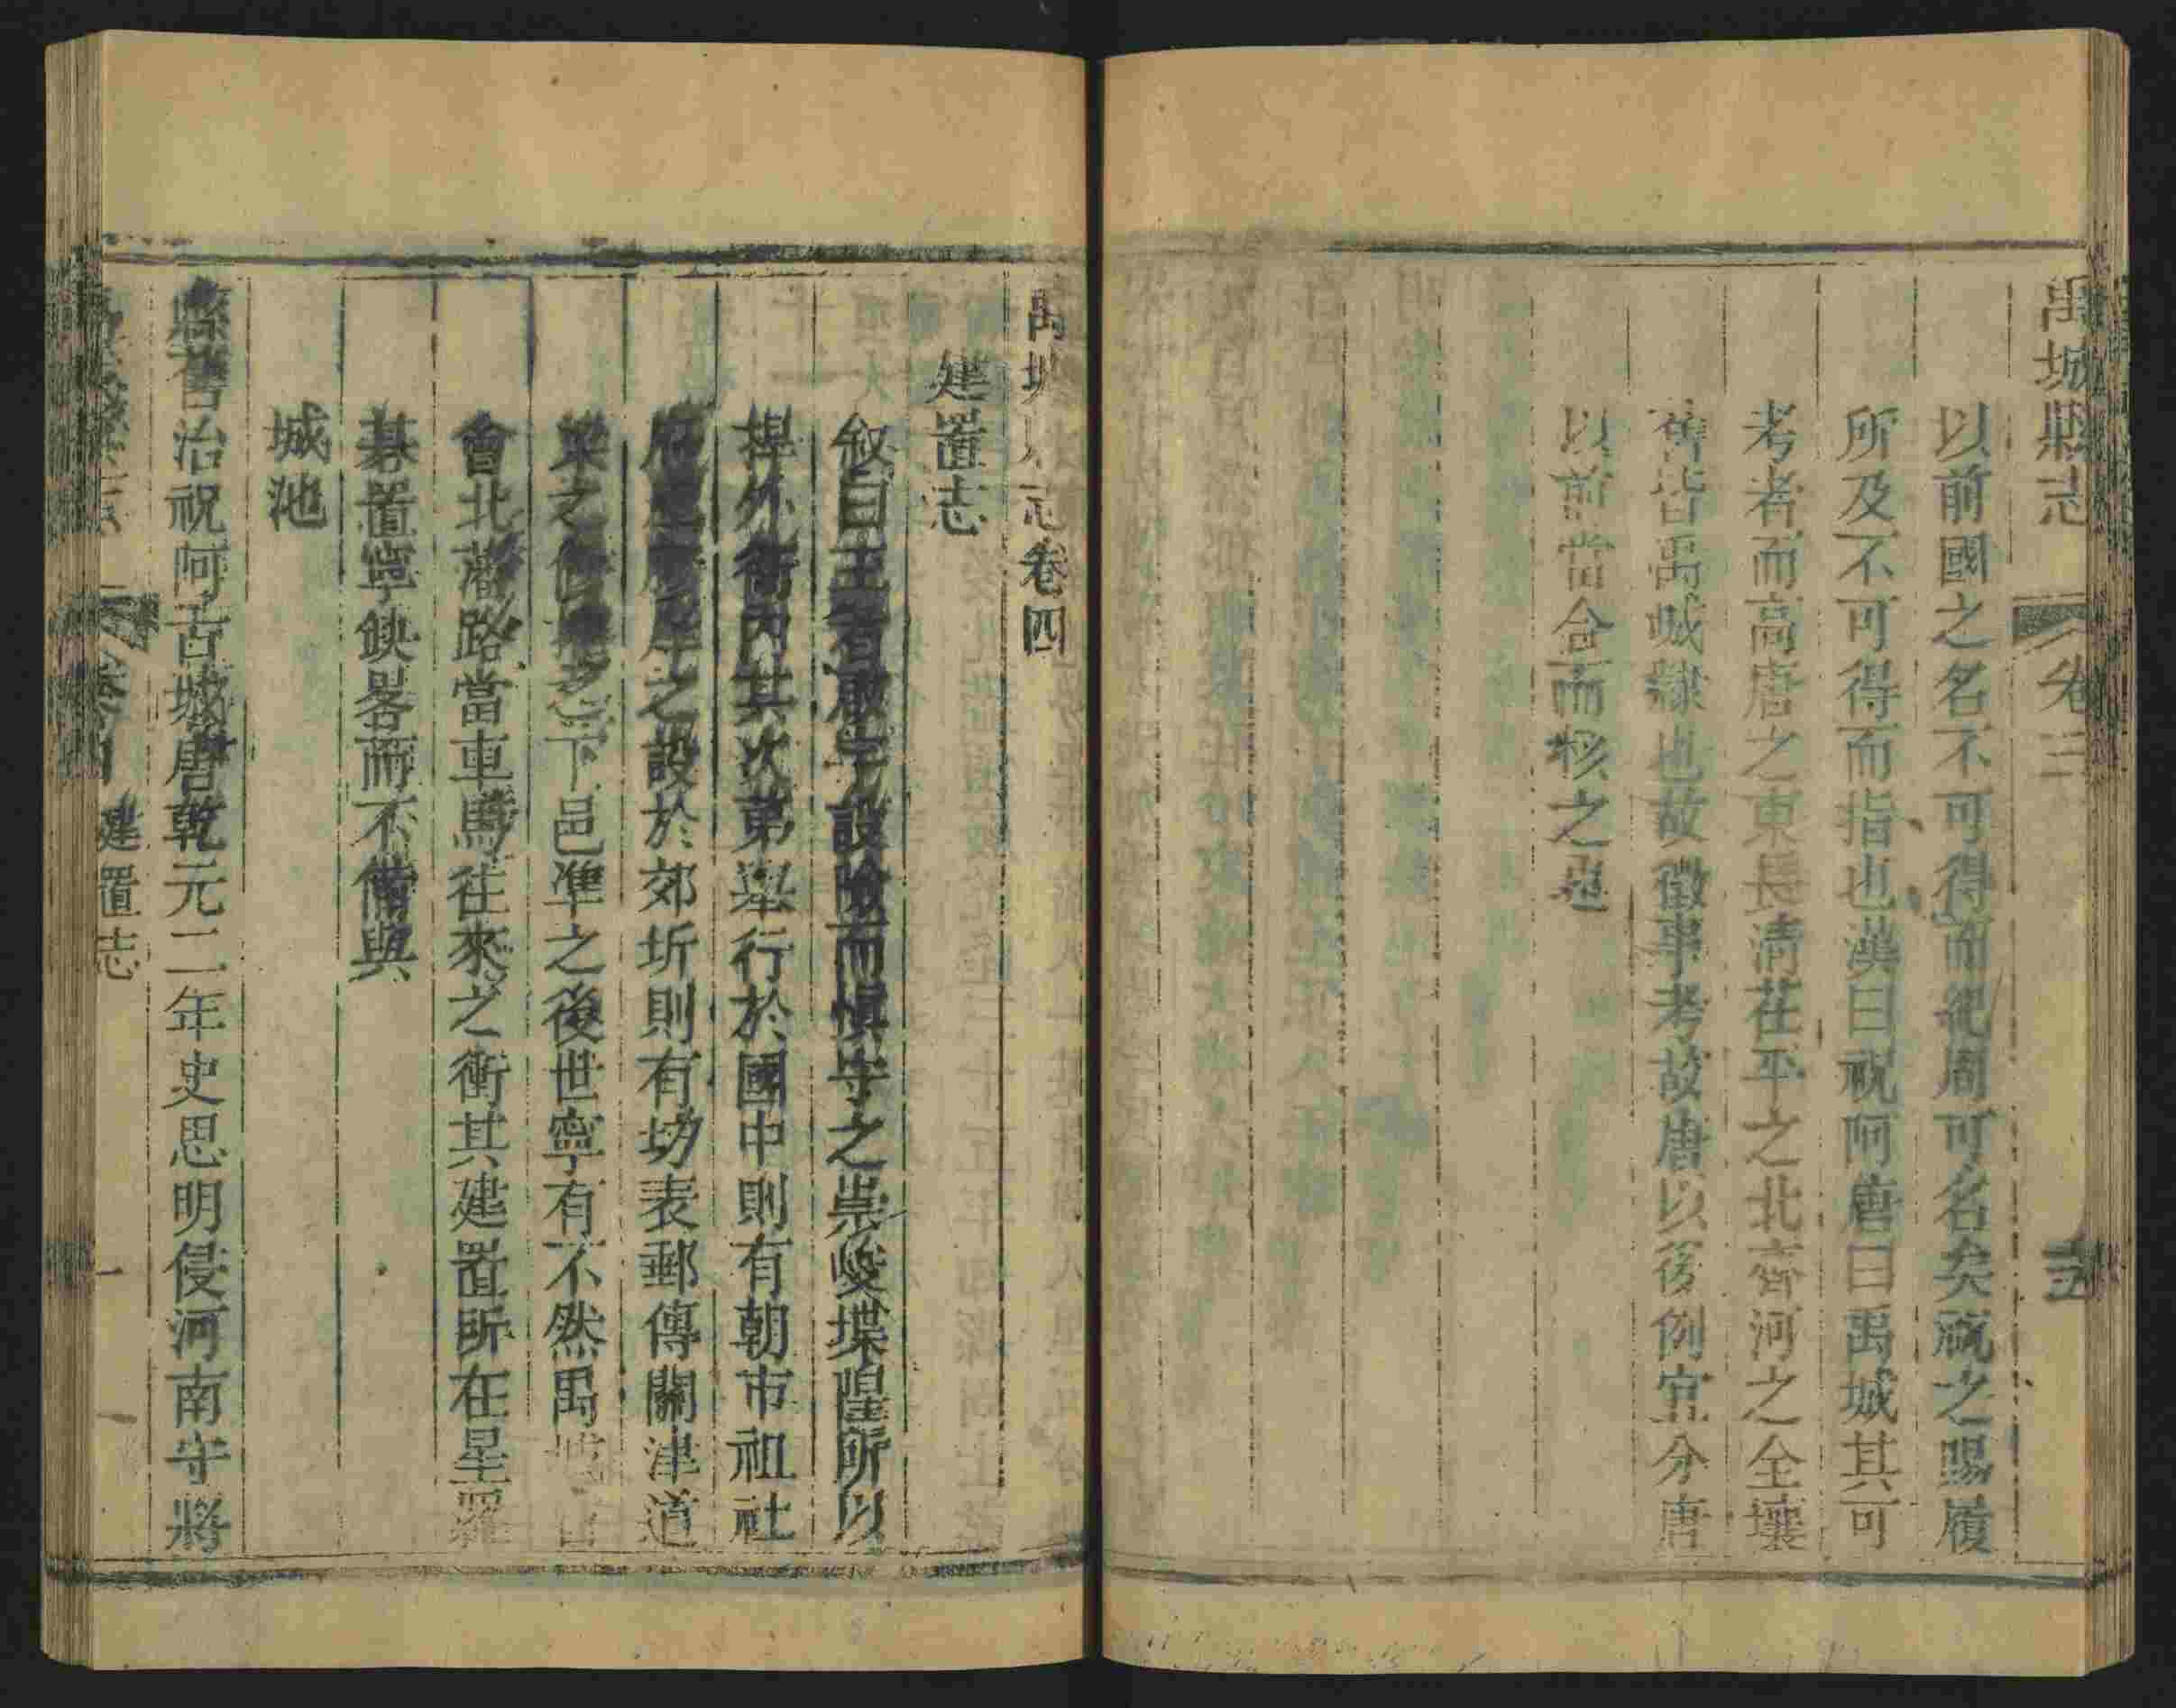 禹城縣志 卷三
以前國之名不可得而祀周可名矣祝之賜履
所及不可得而指也漢曰祝阿唐曰禹城其可
考者而高唐之東長清茌平之北齊河之全壤
舊皆禹城隷也故徵事考故唐以後例宜分唐
以前當合而核之
禹城 志卷四
建置志
叙曰王者啟宇設險而愼守之崇峻堞隍所以
捍外衛內其次第舉行於國中則有朝市祖社
之設於郊圻則有坊表郵傳關津道
梁之 下邑準之後世寧有不然禹
會北 路當車馬往來之衝其建置所在星羅
碁置寧鈌畧而不備與
城池
縣舊治祝阿古城唐乾元二年史思明侵河南守將
建置志 一